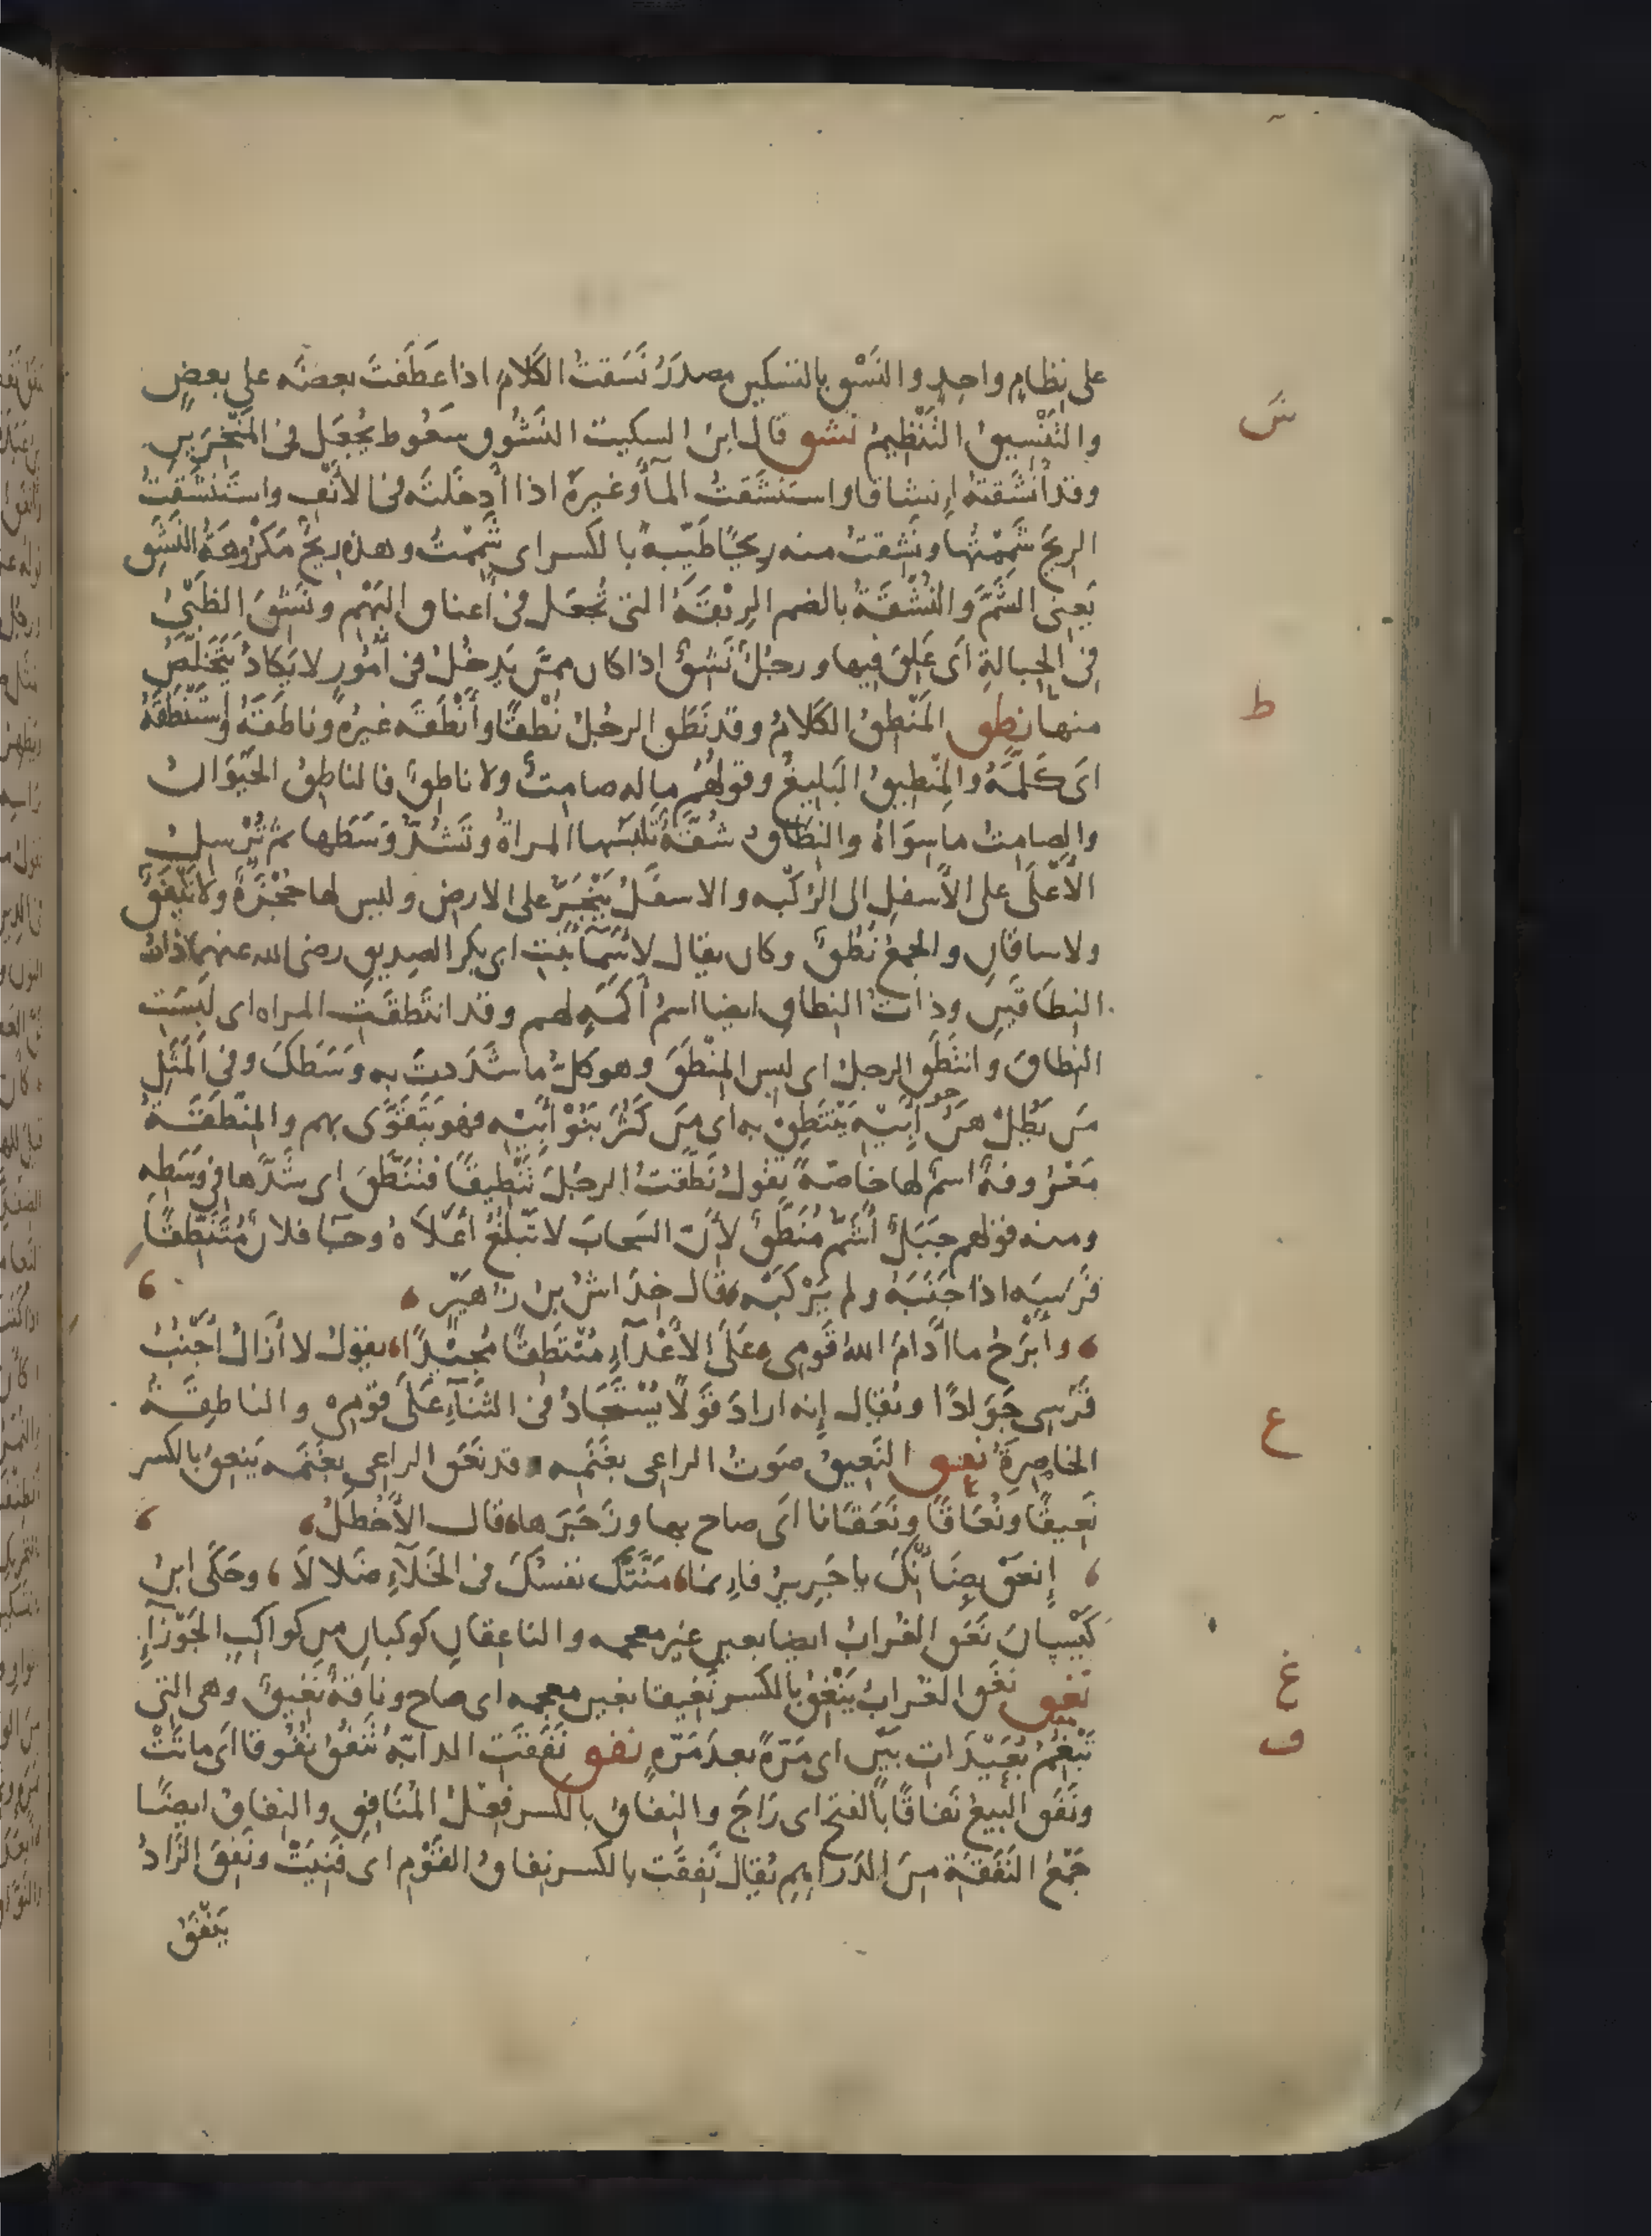 على نِظامٍ واحِدٍ والنَسْق بالتسكين مصدَرُ نَسَقتُ الكَلامَ اذا عَطَفتَ بعضَه على بعضٍ
والتَنْسيقُ التَنْظِيمُ نشق قال ابنُ السكيت النَشُوق سَعُوط يُجعَل فى المَنْخِرَينِ
وقد أَنشَقتُه إِنشاقا واستَنشَقتُ المآءَ وغيرَهُ اذا أَدخَلتَه فى الأَنْفِ واستَنشَقتُ
الريحَ شَمِمْتُها ونَشِقتُ منه رِيحًا طَيّبةً بالكسر اى شَمِمْتُ وهذه رِيحٌ مَكْرُوهَةُ النَشَقِ
يَعنِى الشَمَّ والنُشْقَةُ بالضم الرِبْقَةُ التى تُجعَل فى أعناقِ البَهْمِ ونَشِقَ الظَبْىُ
فى الحِبالةِ اى عَلِقَ فِيها ورجُلٌ نَشِقٌ اذا كان ممَّن يَدخُلُ فى أُمُورٍ لا يَكادُ يَتَخَلَّصُ
منها نطق المَنْطِقُ الكَلامُ وقد نَطَقَ الرجُلُ نُطْقًا وأَنْطَقَه غيرُهُ وناطَقَهُ واستَنْطَقَهُ
اى كَلَّمَهُ والمِنْطِيقُ البَلِيغُ وقولُهُم ماله صامِتٌ ولا ناطِقٌ فالناطِقُ الحَيَوَانُ
والصامِتُ ما سِوَاهُ والنِطَاقُ شُقَّةٌ تَلبَسُها المراةُ وتَشُدُّ وَسَطها ثم تُرْسِلُ
الأَعْلَى على الأَسفلِ الى الرُكبْه والاسفَلُ يَنْجَرُّ على الارضِ وليس لها حُجْزَةٌ ولا نَيْفَقٌ
ولا ساقانِ والجمعُ نُطُقٌ وكان يقال لأَسْمآ بنتِ ابى بكر الصديقِ رضى الله عنهما ذاتُ
النِطَاقَينِ وذاتُ النطاقِ ايضا اسمُ أَكَمَةٍ لهم وقد انتَطَقَتِ المراه اى لَبِسَتِ
النِطاقَ وانتَطَقَ الرجلُ اى لبِسَ المِنْطَقَ وهو كلُّ ما شَدَدتَ به وَسَطَكَ وفى المَثَلِ
مَن يَطُلْ هَنُ أَبِيهِ يَنْتَطِقْ به اى مَن كَثُرَ بَنُوْ أَبِيهِ فهو يَتَقَوَّى بهم والمِنْطَقَةُ
مَعْرُوفةٌ اسمٌ لها خاصّةً تقولُ نَطَّقتُ الرجُلَ تَنْطِيقًا فتَنَطَّقَ اى شَدَّها فى وَسَطِهِ
ومنه قولهم جَبَلٌ أَشَمُّ مُنَطَّقٌ لأَنّ السَحابَ لا تَبْلُغُ أَعْلاَهُ وجآ فلانٌ مُتَنَطِّقًا
فَرَسَه اذا جَنَبَهُ ولم يَرْكَبْه، قال خِدَاشُ بن زُهَيْرٍ،
، وأَبْرَحُ ما أَدَامَ اللهُ قَومِى، عَلَى الأَعْدَآءِ مُنْتَطِقًا مُجِيْدًا، يقولُ لا أَزَالُ أَجْنُبُ
فَرَسِى جَوَادًا ويُقال إنه اراد قَوْلًا يُسْتَجَادُ فى الثَنَآءِ عَلَى قَومِهِ والناطِقَةُ
الخاصِرَةُ نعق النَعِيقُ صَوتُ الراعى بغَنَمِه وقد نَعَقَ الراعِى بغَنَمِه يَنعِقُ بالكسر
نَعِيقًا ونُعَاقًا ونَعَقَانا اى صاح بها وزَجَرَها، قال الأَخْطَلُ،
، إِنعَقْ بِضَأْنِكَ يا جَرِيرُ فإِنما، مَنَّتْكَ نفسُكَ فى الخَلآءِ ضَلالاَ، وحَكَى ابنُ
كَيْسانَ نَعَقَ الغُرابُ ايضا بعين غير معجمه والناعِقانِ كَوكبانِ مِن كواكبِ الجَوْزآءِ
نغق نَغَقَ الغُرابُ يَنْغِقُ بالكسر نَغِيقا بغين معجمه اى صاح وناقةٌ نَغِيقٌ وهى التى
تَبْغُمُ بُعَيْدَاتِ بَيْنٍ اى مَرّةً بعدَ مَرّهٍ نفق نَفَقَتِ الدابّهُ تَنْفُقُ نُفُوقا اى ماتَتْ
ونَفَقَ البَيعُ نَفاقًا بالفتح اى رَاجَ والنِفَاقُ بالكسر فِعْلُ المُنَافِقِ والنِفاقُ ايضًا
جَمْعُ النَفَقَة مِنَ الدَراهِمِ يُقال نَفِقَت بالكسر نِفَاقُ القَوْمِ اى فَنِيَتْ ونَفِقَ الزَادُ
يَنْفَقُ
س
ط
ع
غ
ف